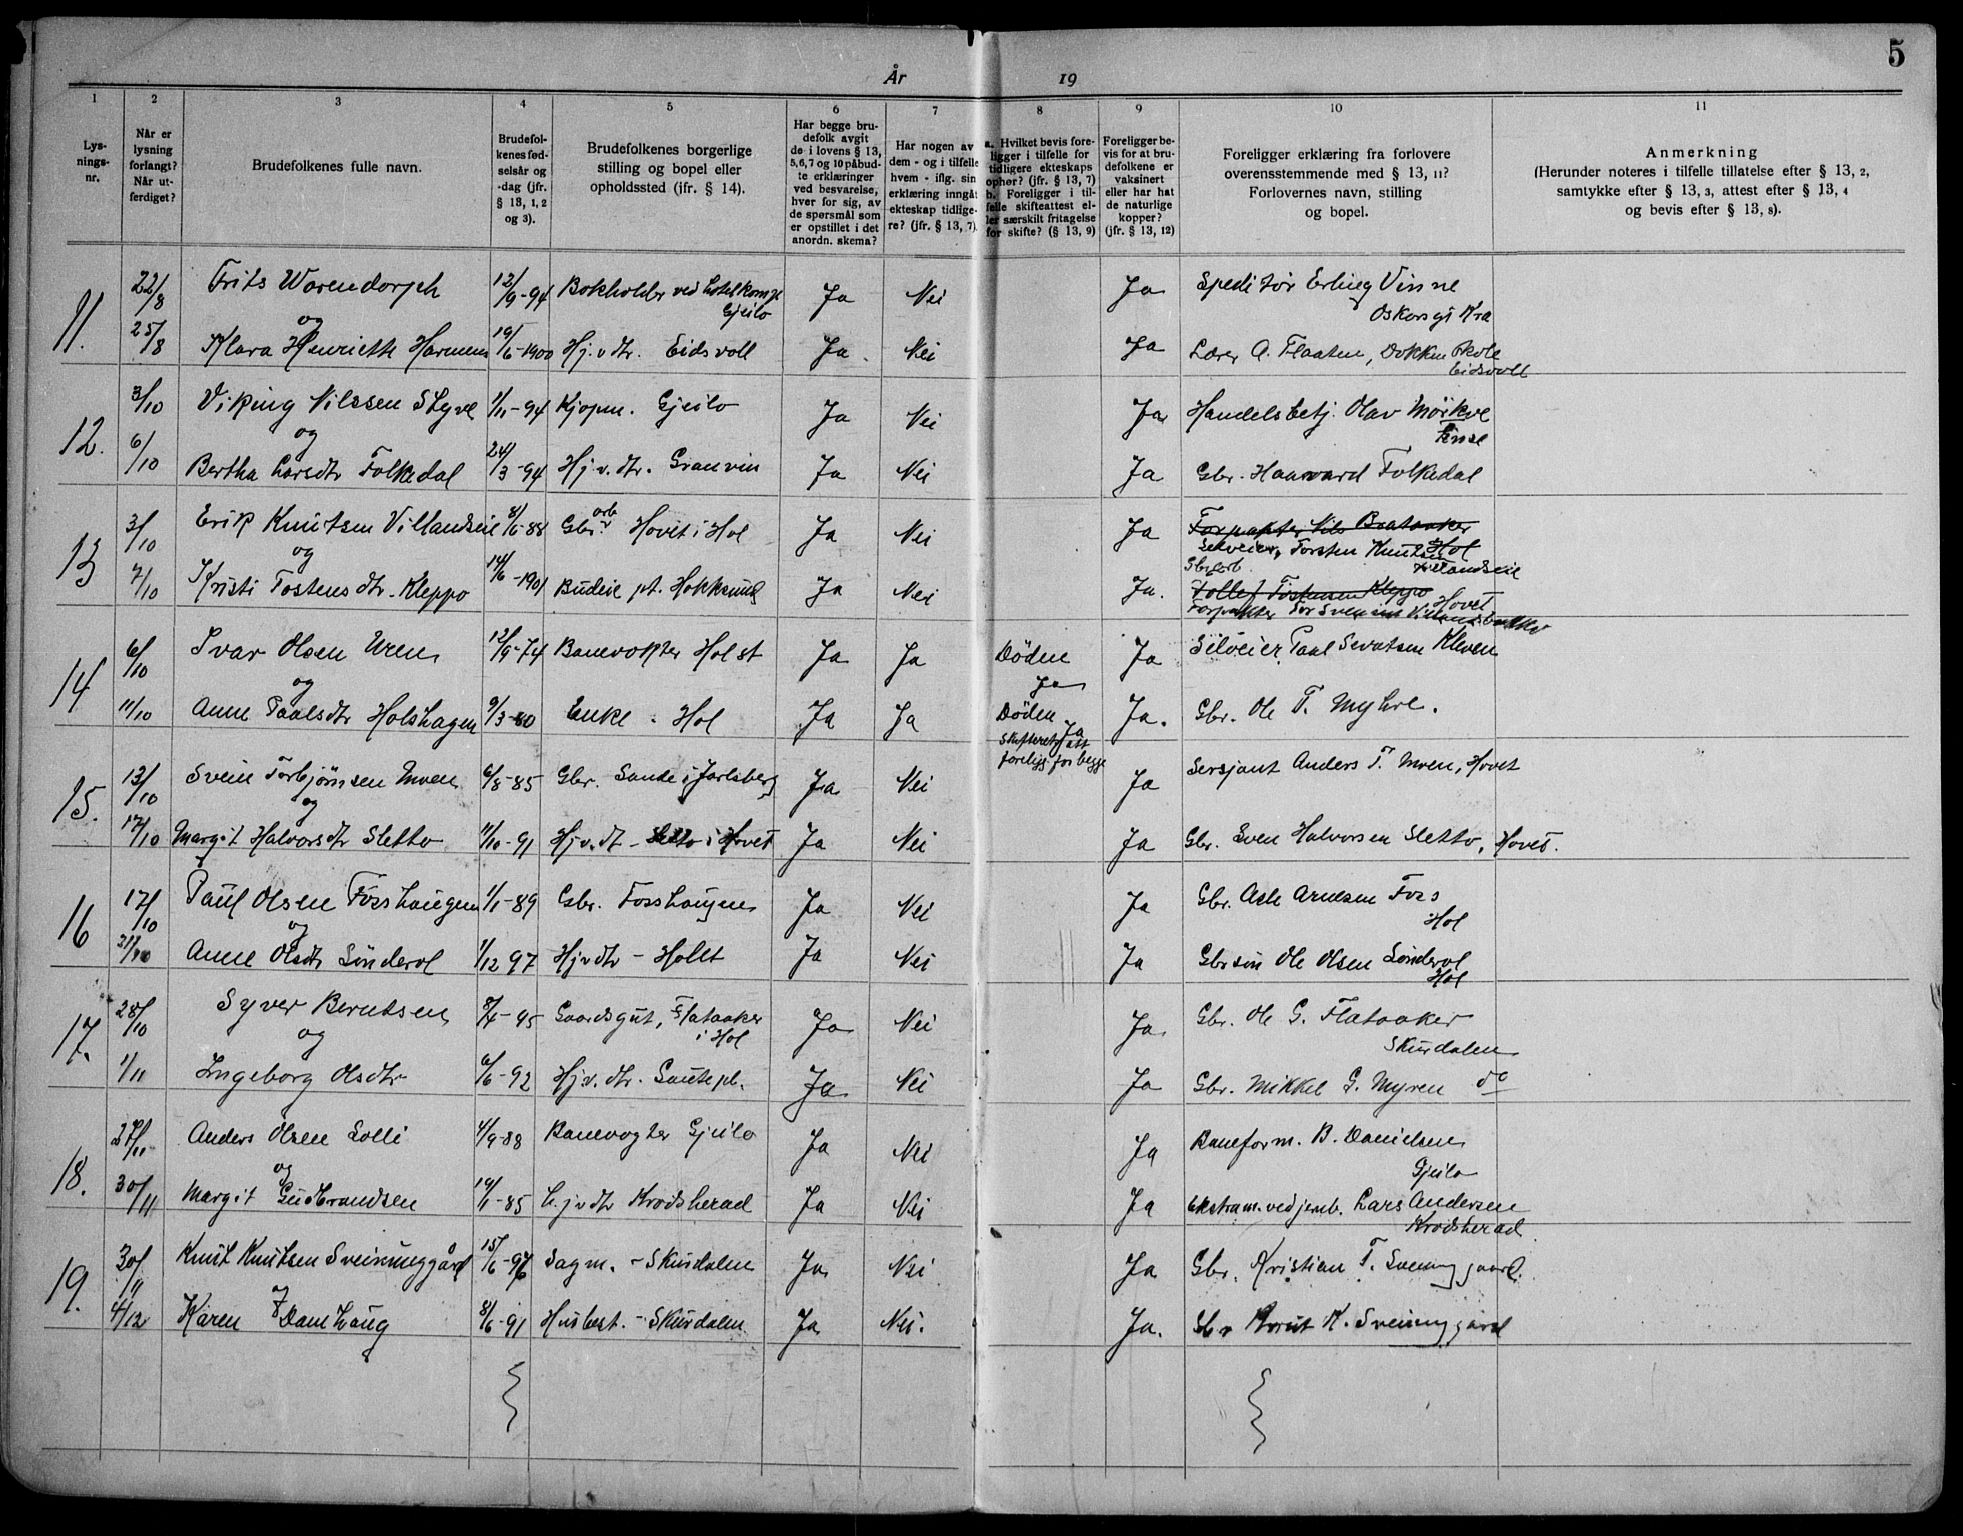 5
År 19
1 2 3 4 5 6 7 8 9 10 11
Lysnings-nr.
Når er lysning forlangt? Når utferdiget?
Brudefolkenes fulle navn.
Brudefolkenes fødselsår og -dag (jfr. § 13, 1, 2 og 3).
Brudefolkenes borgerlige stilling og bopel eller opholdssted (jfr. § 14).
Har begge brudefolk avgit de i lovens § 13, 5, 6, 7 og 10 påbudte erklæringer ved besvarelse, hver for sig, av de spørsmål som er opstillet i det anordn. skema?
Har nogen av dem - og i tilfelle hvem - iflg. sin erklæring inngåt ekteskap tidligere? (jfr. § 13, 7).
a. Hvilket bevis foreligger i tilfelle for tidligere ekteskaps ophør? (jfr. § 13, 7) b. Foreligger i tilfelle skifteattest eller særskilt fritagelse for skifte? (§ 13, 9)
Foreligger bevis for at brudefolkene er vaksinert eller har hat de naturlige kopper? (jfr. § 13, 12)
Foreligger erklæring fra forlovere overensstemmende med § 13, 11? Forlovernes navn, stilling og bopel.
Anmerkning (Herunder noteres i tilfelle tillatelse efter § 13, 2, samtykke efter § 13, 3, attest efter § 13, 4 og bevis efter § 13, 8).
11. 22/8 Frits Warendorph 12/9-94 Bokholder ved hotelkomp Gjeilo Ja Nei Ja Speditør Erling Vinne
Oskarsgt Kra
og
25/8 Klara Henriette Harmens 19/6-1900 Hj.v.dtr. Eidsvoll Ja Nei Ja Lærer A. Flaaten, Dokken Skole
Eidsvoll
12. 3/10 Viking Nilssen Styve 1/11-94 Kjøpm. Gjeilo Ja Nei Ja Handelsbetj. Olav Mørkve
Finse
og
6/10 Bertha Larsdtr Folkedal 24/3-94 Hj.v.dtr. Granvin Ja Nei Ja Gbr. Haavard Folkedal
13 3/10 Erik Knutsen Villandseie 8/6-88 Gbr.arb Hovet i Hol Ja Nei Ja Forpakter Nils Brataaker
Hol
Selveier, Torsten Knutsen Villandseie
og
7/10 Kristi Tostensdtr. Kleppo 14/6-1901 Budeie pt. Hokksund Ja Nei Ja. Gbrarb. Tollef Tostensen Kleppo Hovet
Forpakter Tor Svensen Villandsbakke
14 6/10 Ivar Olsen Uren 12/9-74 Banevokter Hol st Ja Ja Døden Ja Ja Selveier Paal Sevatsen Kleven
og
11/10 Anne Paalsdtr Holshagen 9/3-80 Enke. Hol Ja Ja Døden Ja Ja. Gbr. Ole T. Myhre.
Skifteretsatt
foreligg for begge
15. 13/10 Svein Torbjørnsen Moen 6/8-85 Gbr. Sande i Jarlsberg Ja Nei Ja Sersjant Anders T. Moen, Hovet
og
17/10 Margit Halvorsdtr Sletto 11/10-91 Hjv.dt - Sletto i Hovet Ja Nei Ja Gbr. Sven Halvorsen Sletto, Hovet.
16 17/10 Paul Olsen Fosshaugen 1/1-89 Gbr. Fosshaugen Ja Nei Ja Gbr. Asle Arnesen Foss
Hol
og
21/10 Anne Olsdtr Sønderol 1/12 97 Hjvdtr - Holet Ja Nei Ja Gbrsøn Ole Olsen Sønderol
Hol
17. 28/10 Syver Berntsen 8/4-95 Gaardsgut, Flataaker i Hol Ja Nei Ja Gbr. Ole G. Flataaker
Skurdalen
og
1/11 Ingeborg Olsdtr 6/6-92 Hjv.dtr. Sautepl. Ja Nei Ja Gbr. Mikkel G. Myren do
18. 27/11 Anders Olsen Solli 4/9-88 Banevogter Gjeilo Ja Nei Ja Baneform. B. Danielsen
Gjeilo
og
30/11 Margit Gudbrandsen 19/1-85 Hjvdtr Krødsherad Ja Nei Ja Ekstram. ved jernb. Lars Andersen
Krødsherad
19. 30/11 Knut Knutsen Sveinunggård 15/6-96 Sagm. - Skurdalen Ja Nei Ja Gbr. Kristian T. Sveinunggaard.
og
4/12 Karen Damhaug 8/6-91 Husbest. - Skurdalen Ja Nei. Ja. Gbr Knut K. Sveinunggård